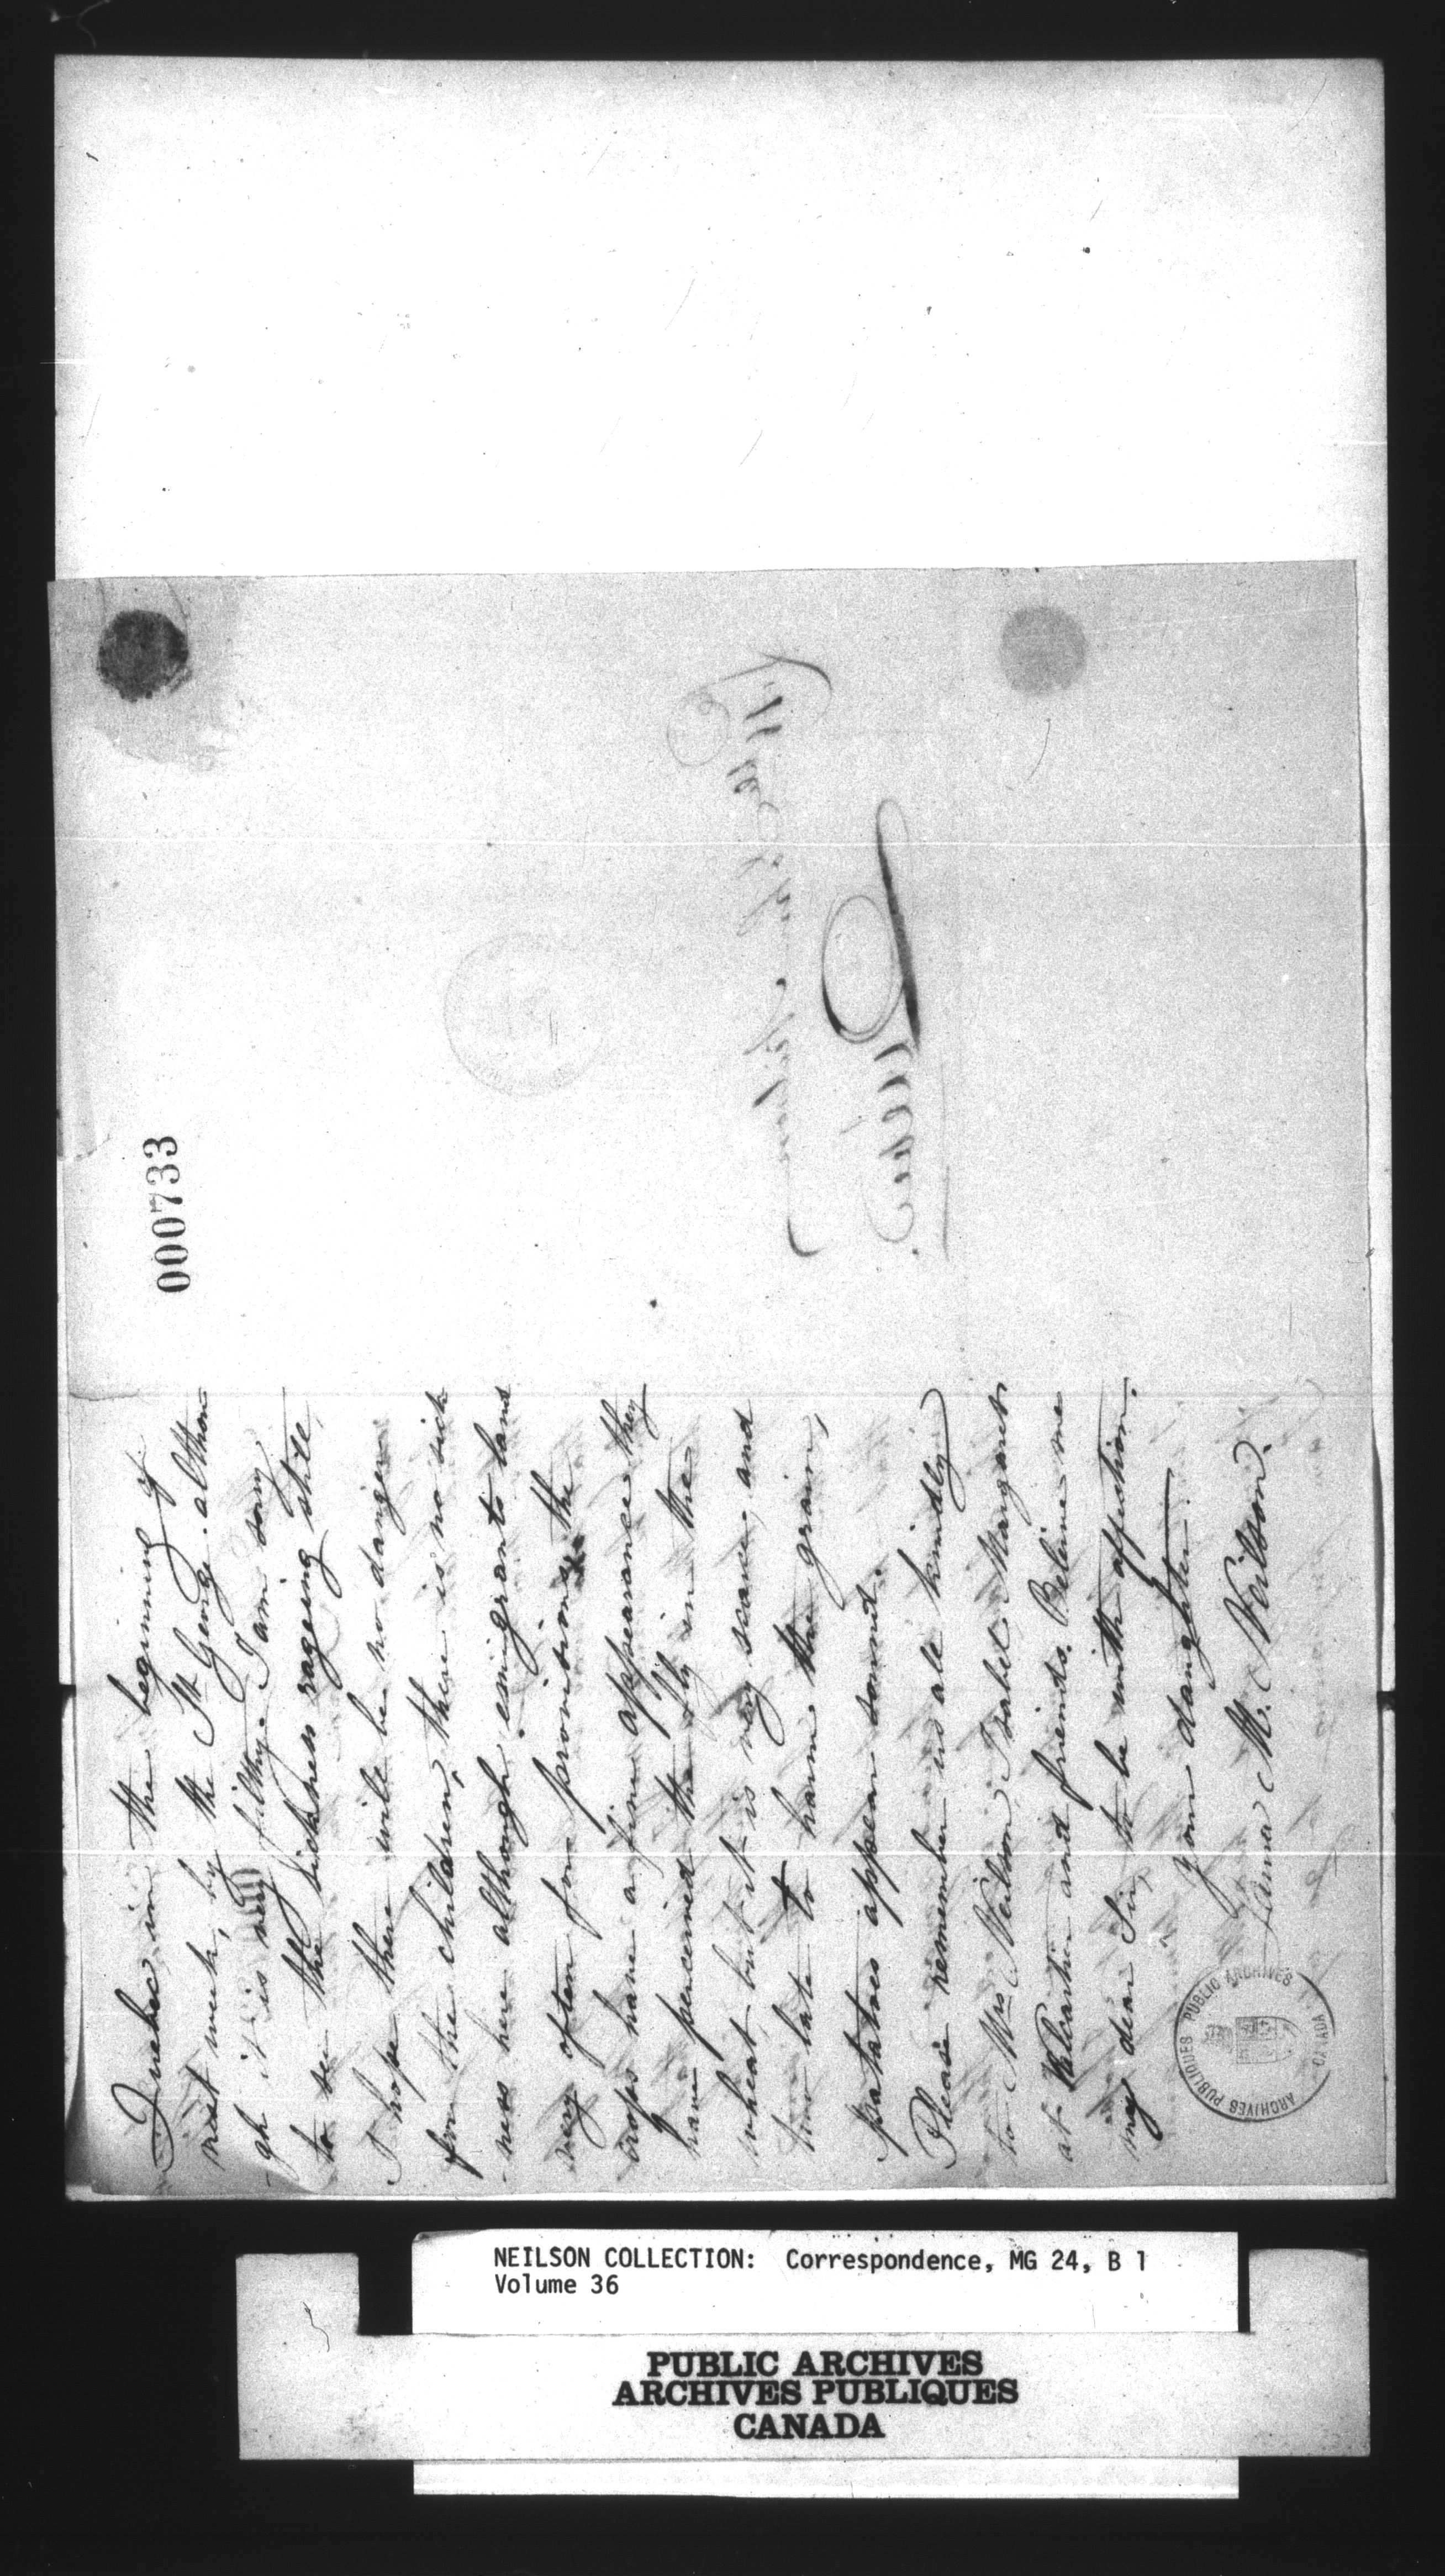 000733
Quebec in the beginning of
next week, by the St George. althou
-gh it is very filthy. I am sorry
to see the sickness rageing still
I hope there will be no danger
for the children, there is no sick
-ness here although emigrants land
very often for provisions the
crops have a fine appearance they
have perceived the fly in the
wheat, but it is very scarce, and
too late to harm the grain,
potatoes appear sound.
Please remember us all kindly
to Mrs Neilson, Isabel Margaret
at Valcartier and friends. Believe me
my dear Sir, to be with affection.
your daughter.
M. Neilson.
PUBLIC ARCHIVES
ARCHIVES PUBLIQUES
CANADA
NEILSON COLLECTION: Correspondence, MG 24, B 1
Volume 36
PUBLIC ARCHIVES
ARCHIVES PUBLIQUES
CANADA